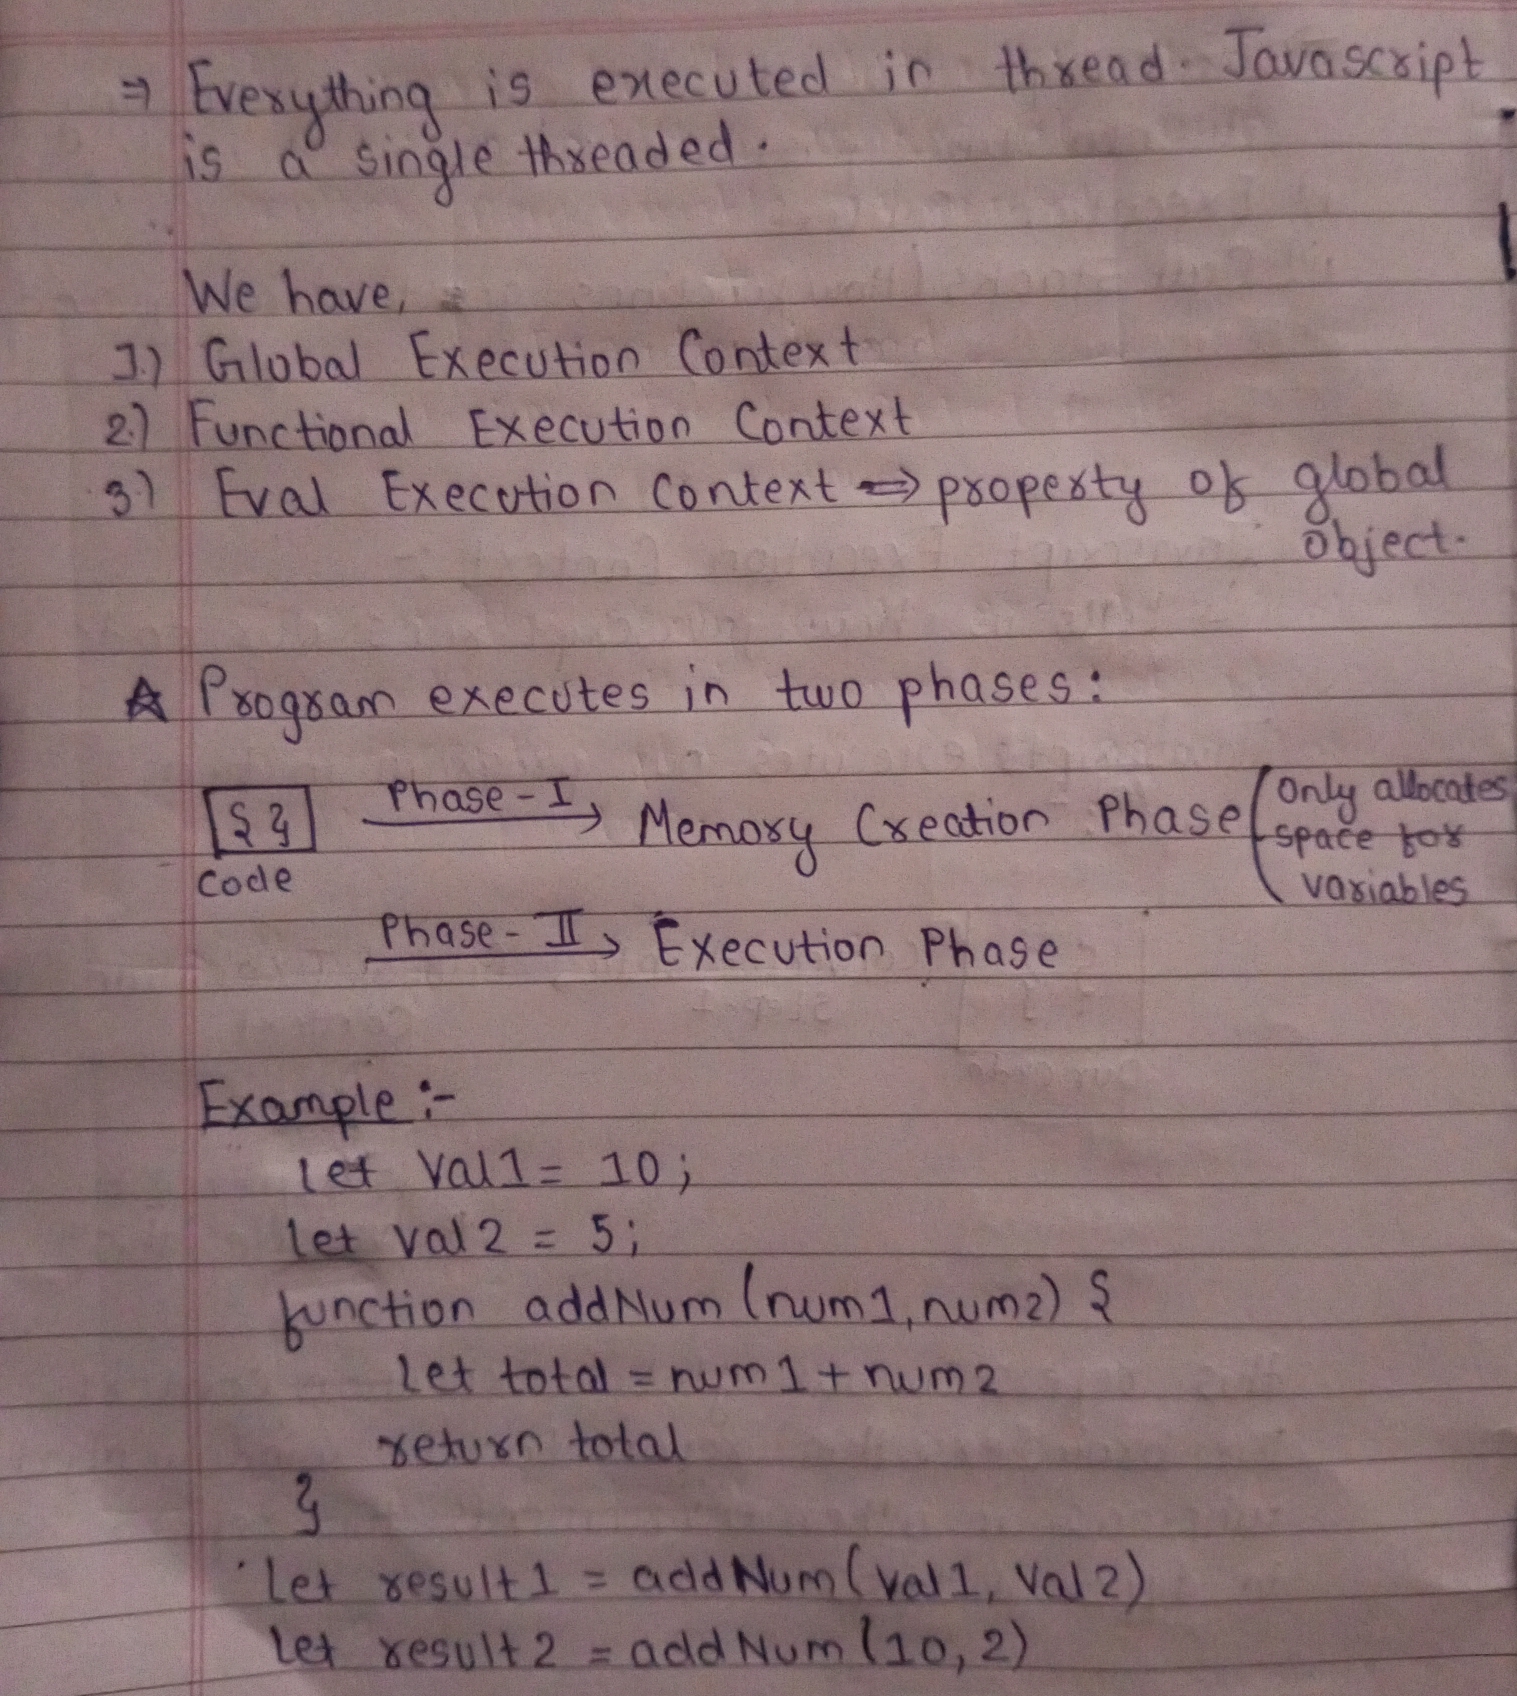 ⇒ Everything is executed in thread. Javascript
is a single threaded.
We have,
1.) Global Execution Context
2.) Functional Execution Context
3.) Eval Execution Context ⇒ property of global
object.
☆ Program executes in two phases:
{ } Phase-I → Memory Creation Phase (Only allocates
space for
variables
Code
Phase-II → Execution Phase
Example :-
let Val1 = 10;
let val2 = 5;
function addNum (num1, num2) {
let total = num1 + num2
return total
}
let result1 = addNum (val1, val2)
let result2 = addNum (10, 2)